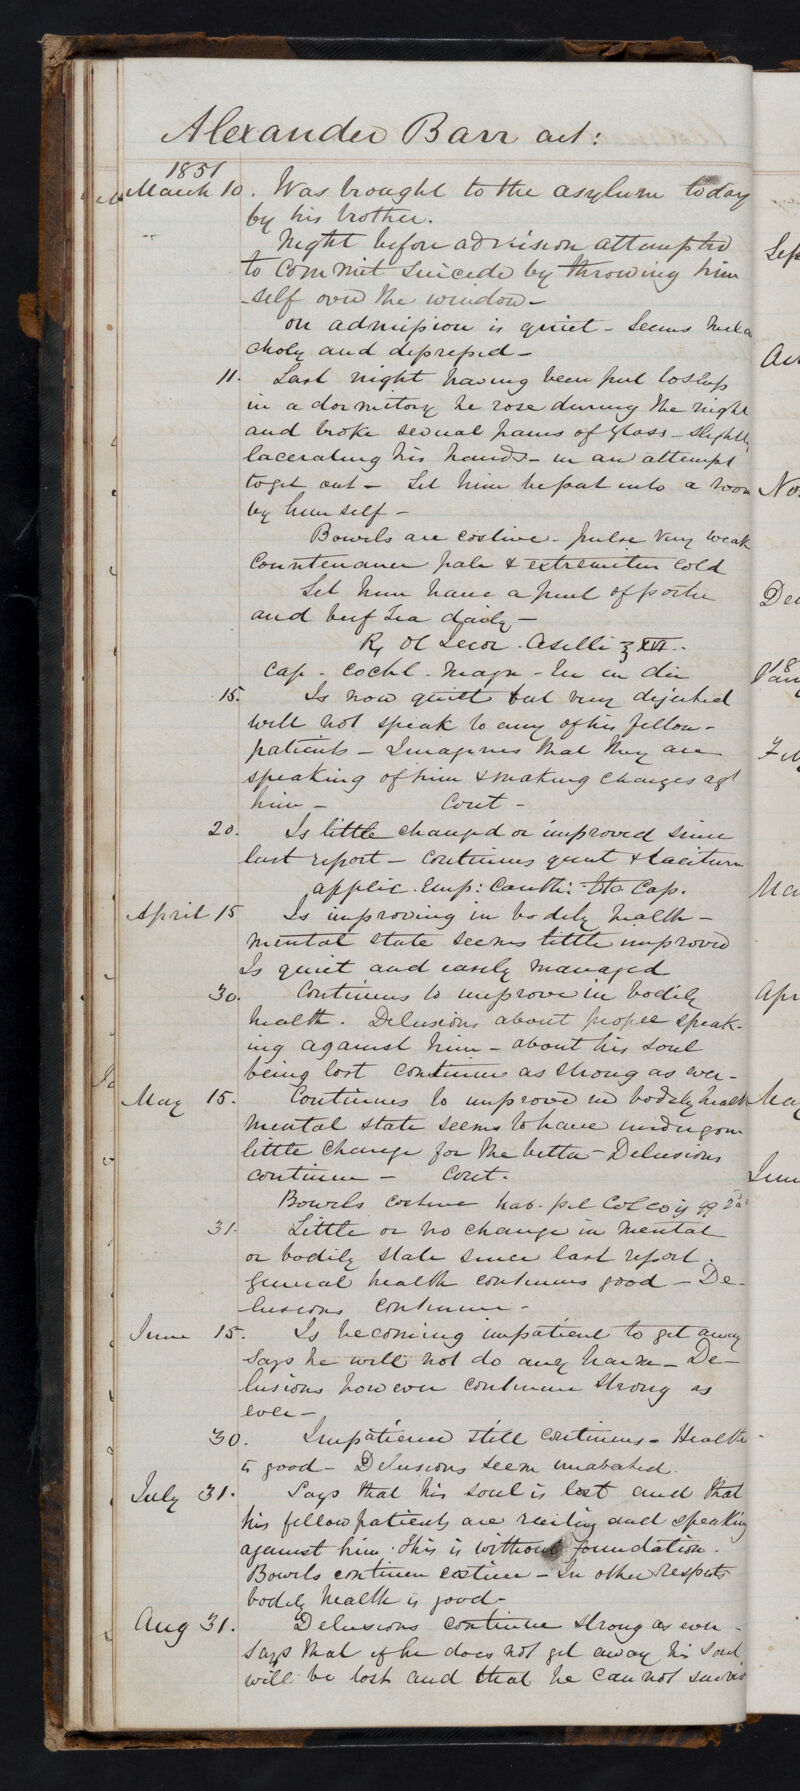 Alexander Barr aet:
1851
March 10. Was brought to the asylum today
by his brother.
Night before admission attempted
to commit suicide by throwing him
-self over the window -
on admission is quiet - Seems mela
choly and depressed -
11. Last night having been put to sleep
in a dormitory he rose during the night
and broke several panes of glass - slightly
lacerating his hands - in an attempt
to get out - Let him be put into a room
by himself -
Bowels are costive - pulse very weak
Countenance pale & extremities cold
Let him have a pint of porter
and beef tea daily -
Rx Ol Jecor. Aselli ℥ XVI.
Cap. Cochl. Magn - Ter in die
15. Is now quiet but very dejected
will not speak to any of his fellow-
patients - Imagines that they are
speaking of him & making charges agt
him - Cont -
20. Is little changed or improved since
last report - continues quiet & taciturn
applic. Emp: Canth: Cap.
April 15 Is improving in bodily health -
mental state seems little improved
Is quiet and easily managed
30. Continues to improve in bodily
health. Delusions about people speak-
ing against him - about his soul
being lost continue as strong as ever -
May 15. Continues to improve in bodily health
mental state seems to have undergone
little change for the better - Delusions
continue - Cont.
Bowels costive hab. pil Col co ij
31. Little or no change in mental
or bodily state since last report.
General health continues good - De-
lusions continue -
June 15. Is becoming impatient to get away
Says he will not do any harm - De-
lusions however continue strong as
ever -
30. Impatience still continues - Health
is good - Delusions seem unabated.
July 31. Says that his soul is lost and that
his fellow patients are and speaking
against him. This is without foundation.
Bowels continue costive - In other respects
bodily health is good -
Aug 31. Delusions continue strong as ever -
Says that if he does not get away his soul
will be lost and that he can not
Sep
No
Dec
18
Jan
Feb
Ma
Apr
May
June